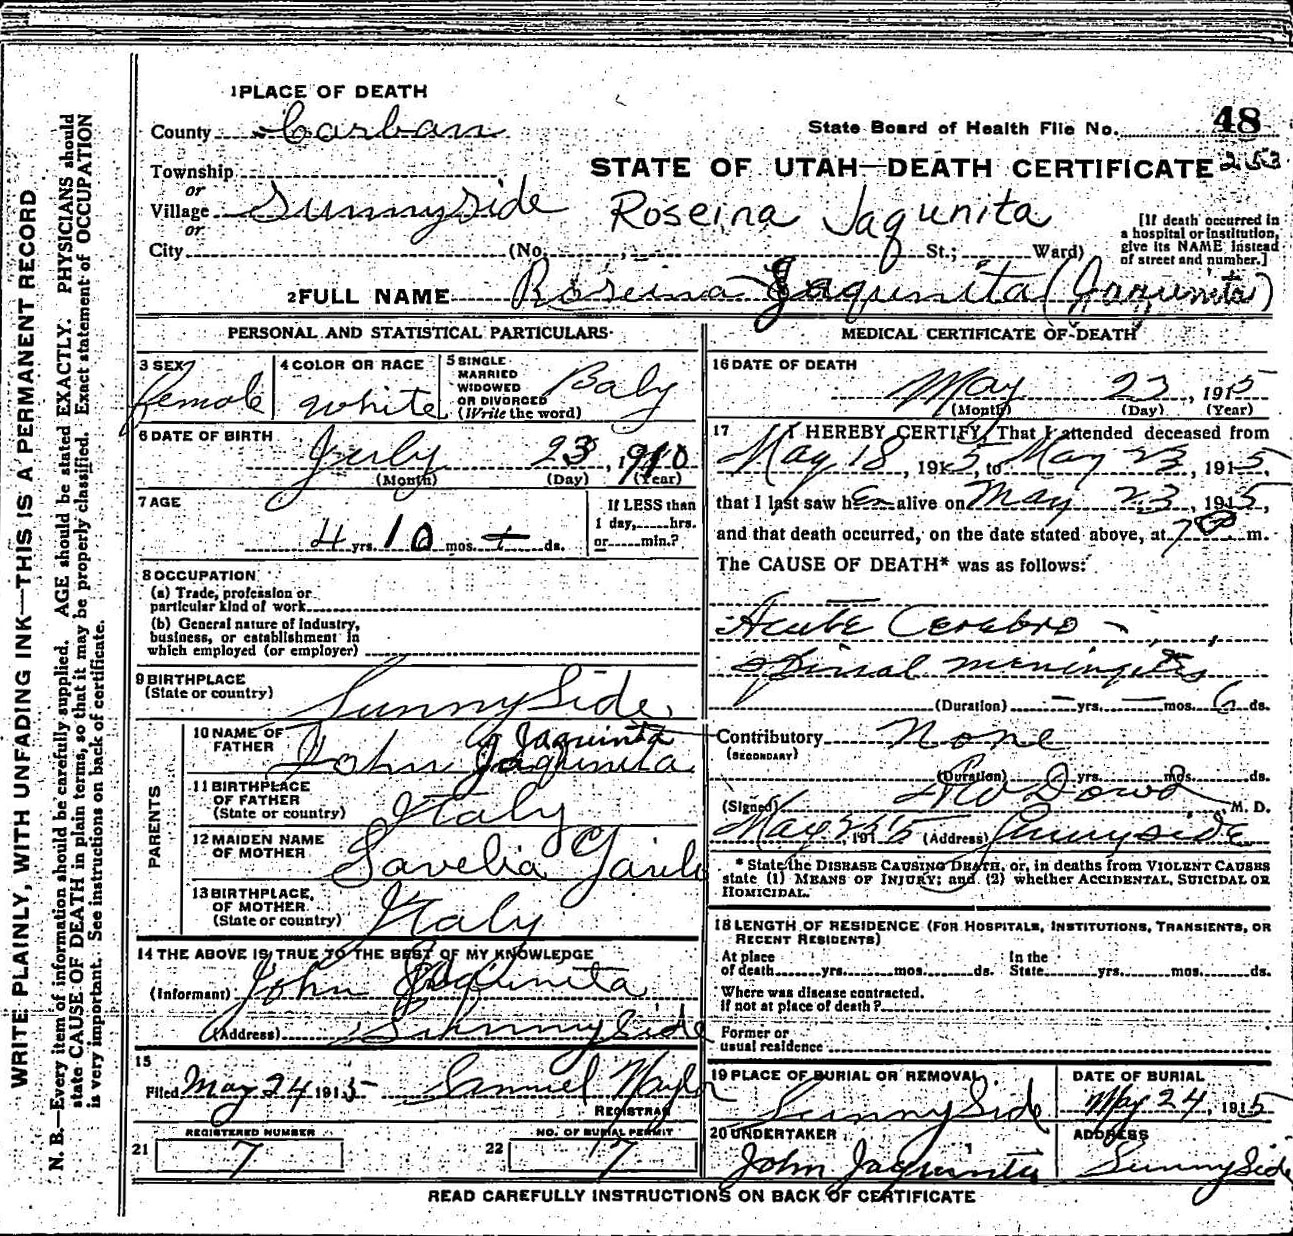 1 PLACE OF DEATH
County Carbon
State Board of Health File No. 48
Township
STATE OF UTAH—DEATH CERTIFICATE 253
or
Village Sunnyside Roseina Jaqunita
or
City (No. St.; Ward)
[If death occurred in
a hospital or institution,
give its NAME instead
of street and number.]
2 FULL NAME Roseina Jaqunita (Jaqunita)
PERSONAL AND STATISTICAL PARTICULARS
3 SEX
female
4 COLOR OR RACE
white
5 SINGLE
MARRIED
WIDOWED
OR DIVORCED
(Write the word)
Baby
6 DATE OF BIRTH
July 23, 1910
(Month) (Day) (Year)
7 AGE
4 yrs. 10 mos. ds.
If LESS than
1 day, hrs.
or min.?
8 OCCUPATION
(a) Trade, profession or
particular kind of work
(b) General nature of industry,
business, or establishment in
which employed (or employer)
9 BIRTHPLACE
(State or country)
SunnySide
PARENTS
10 NAME OF
FATHER
Jaquinta
John Jaqunita
11 BIRTHPLACE
OF FATHER
(State or country)
Italy
12 MAIDEN NAME
OF MOTHER
Savelia
13 BIRTHPLACE,
OF MOTHER
(State or country)
Italy
14 THE ABOVE IS TRUE TO THE BEST OF MY KNOWLEDGE
(Informant) John Jaqunita
(Address) Sunnyside
15
Filed May 24 1915 Samuel Naylor
REGISTRAR
REGISTERED NUMBER
21 7
NO. OF BURIAL PERMIT
22 7
MEDICAL CERTIFICATE OF DEATH
16 DATE OF DEATH
May 23, 1915
(Month) (Day) (Year)
17 I HEREBY CERTIFY, That I attended deceased from
May 18, 1915, to May 23, 1915,
that I last saw her alive on May 23, 1915,
and that death occurred, on the date stated above, at 7 m.
The CAUSE OF DEATH* was as follows:
Acute Cerebro-
spinal meningitis
(Duration) yrs. mos. 6 ds.
Contributory None
(SECONDARY)
(Duration) yrs. mos. ds.
(Signed) Dowd M. D.
May, 1915 (Address) Sunnyside
* State the DISEASE CAUSING DEATH, or, in deaths from VIOLENT CAUSES
state (1) MEANS OF INJURY; and (2) whether ACCIDENTAL, SUICIDAL OR
HOMICIDAL.
18 LENGTH OF RESIDENCE (FOR HOSPITALS, INSTITUTIONS, TRANSIENTS, OR
RECENT RESIDENTS)
At place
of death yrs. mos. ds.
In the
State yrs. mos. ds.
Where was disease contracted,
if not at place of death?
Former or
usual residence
19 PLACE OF BURIAL OR REMOVAL
SunnySide
DATE OF BURIAL
May 24, 1915
20 UNDERTAKER
John Jaqunita
ADDRESS
SunnySide
READ CAREFULLY INSTRUCTIONS ON BACK OF CERTIFICATE
WRITE PLAINLY, WITH UNFADING INK—THIS IS A PERMANENT RECORD
N. B.—Every item of information should be carefully supplied. AGE should be stated EXACTLY. PHYSICIANS should
state CAUSE OF DEATH in plain terms, so that it may be properly classified. Exact statement of OCCUPATION
is very important. See instructions on back of certificate.